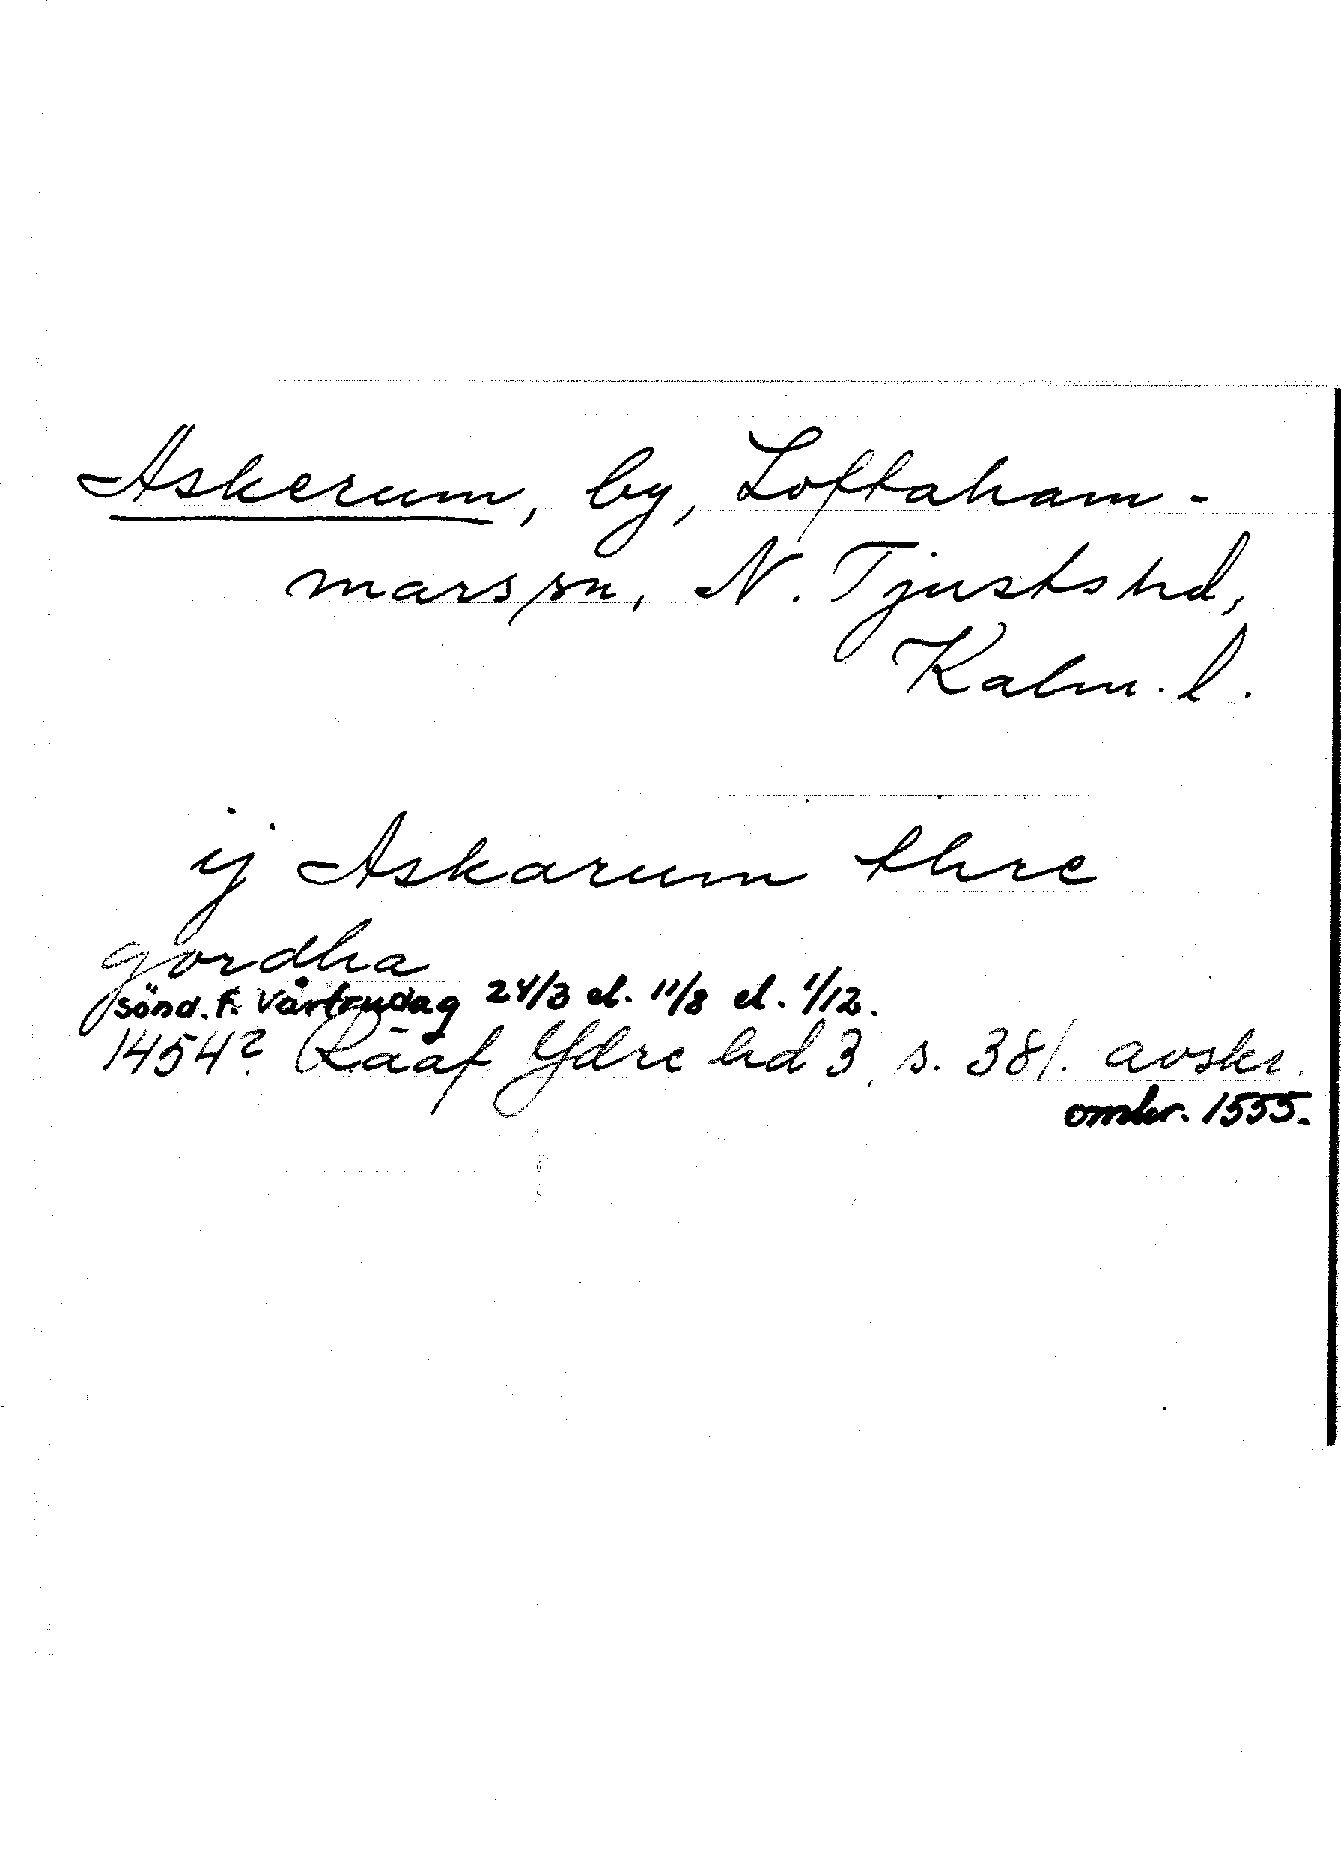 Askerum, by, Loftaham-
mars sn, N. Tjusts hd,
Kalm. l.
ij Askarum thre
gordha
sönd. f. Vårfrudag 24/3 el. 11/8 el. 1/12.
1454? Rääf Ydre hd 3 s. 381. avskr.
omkr. 1555.